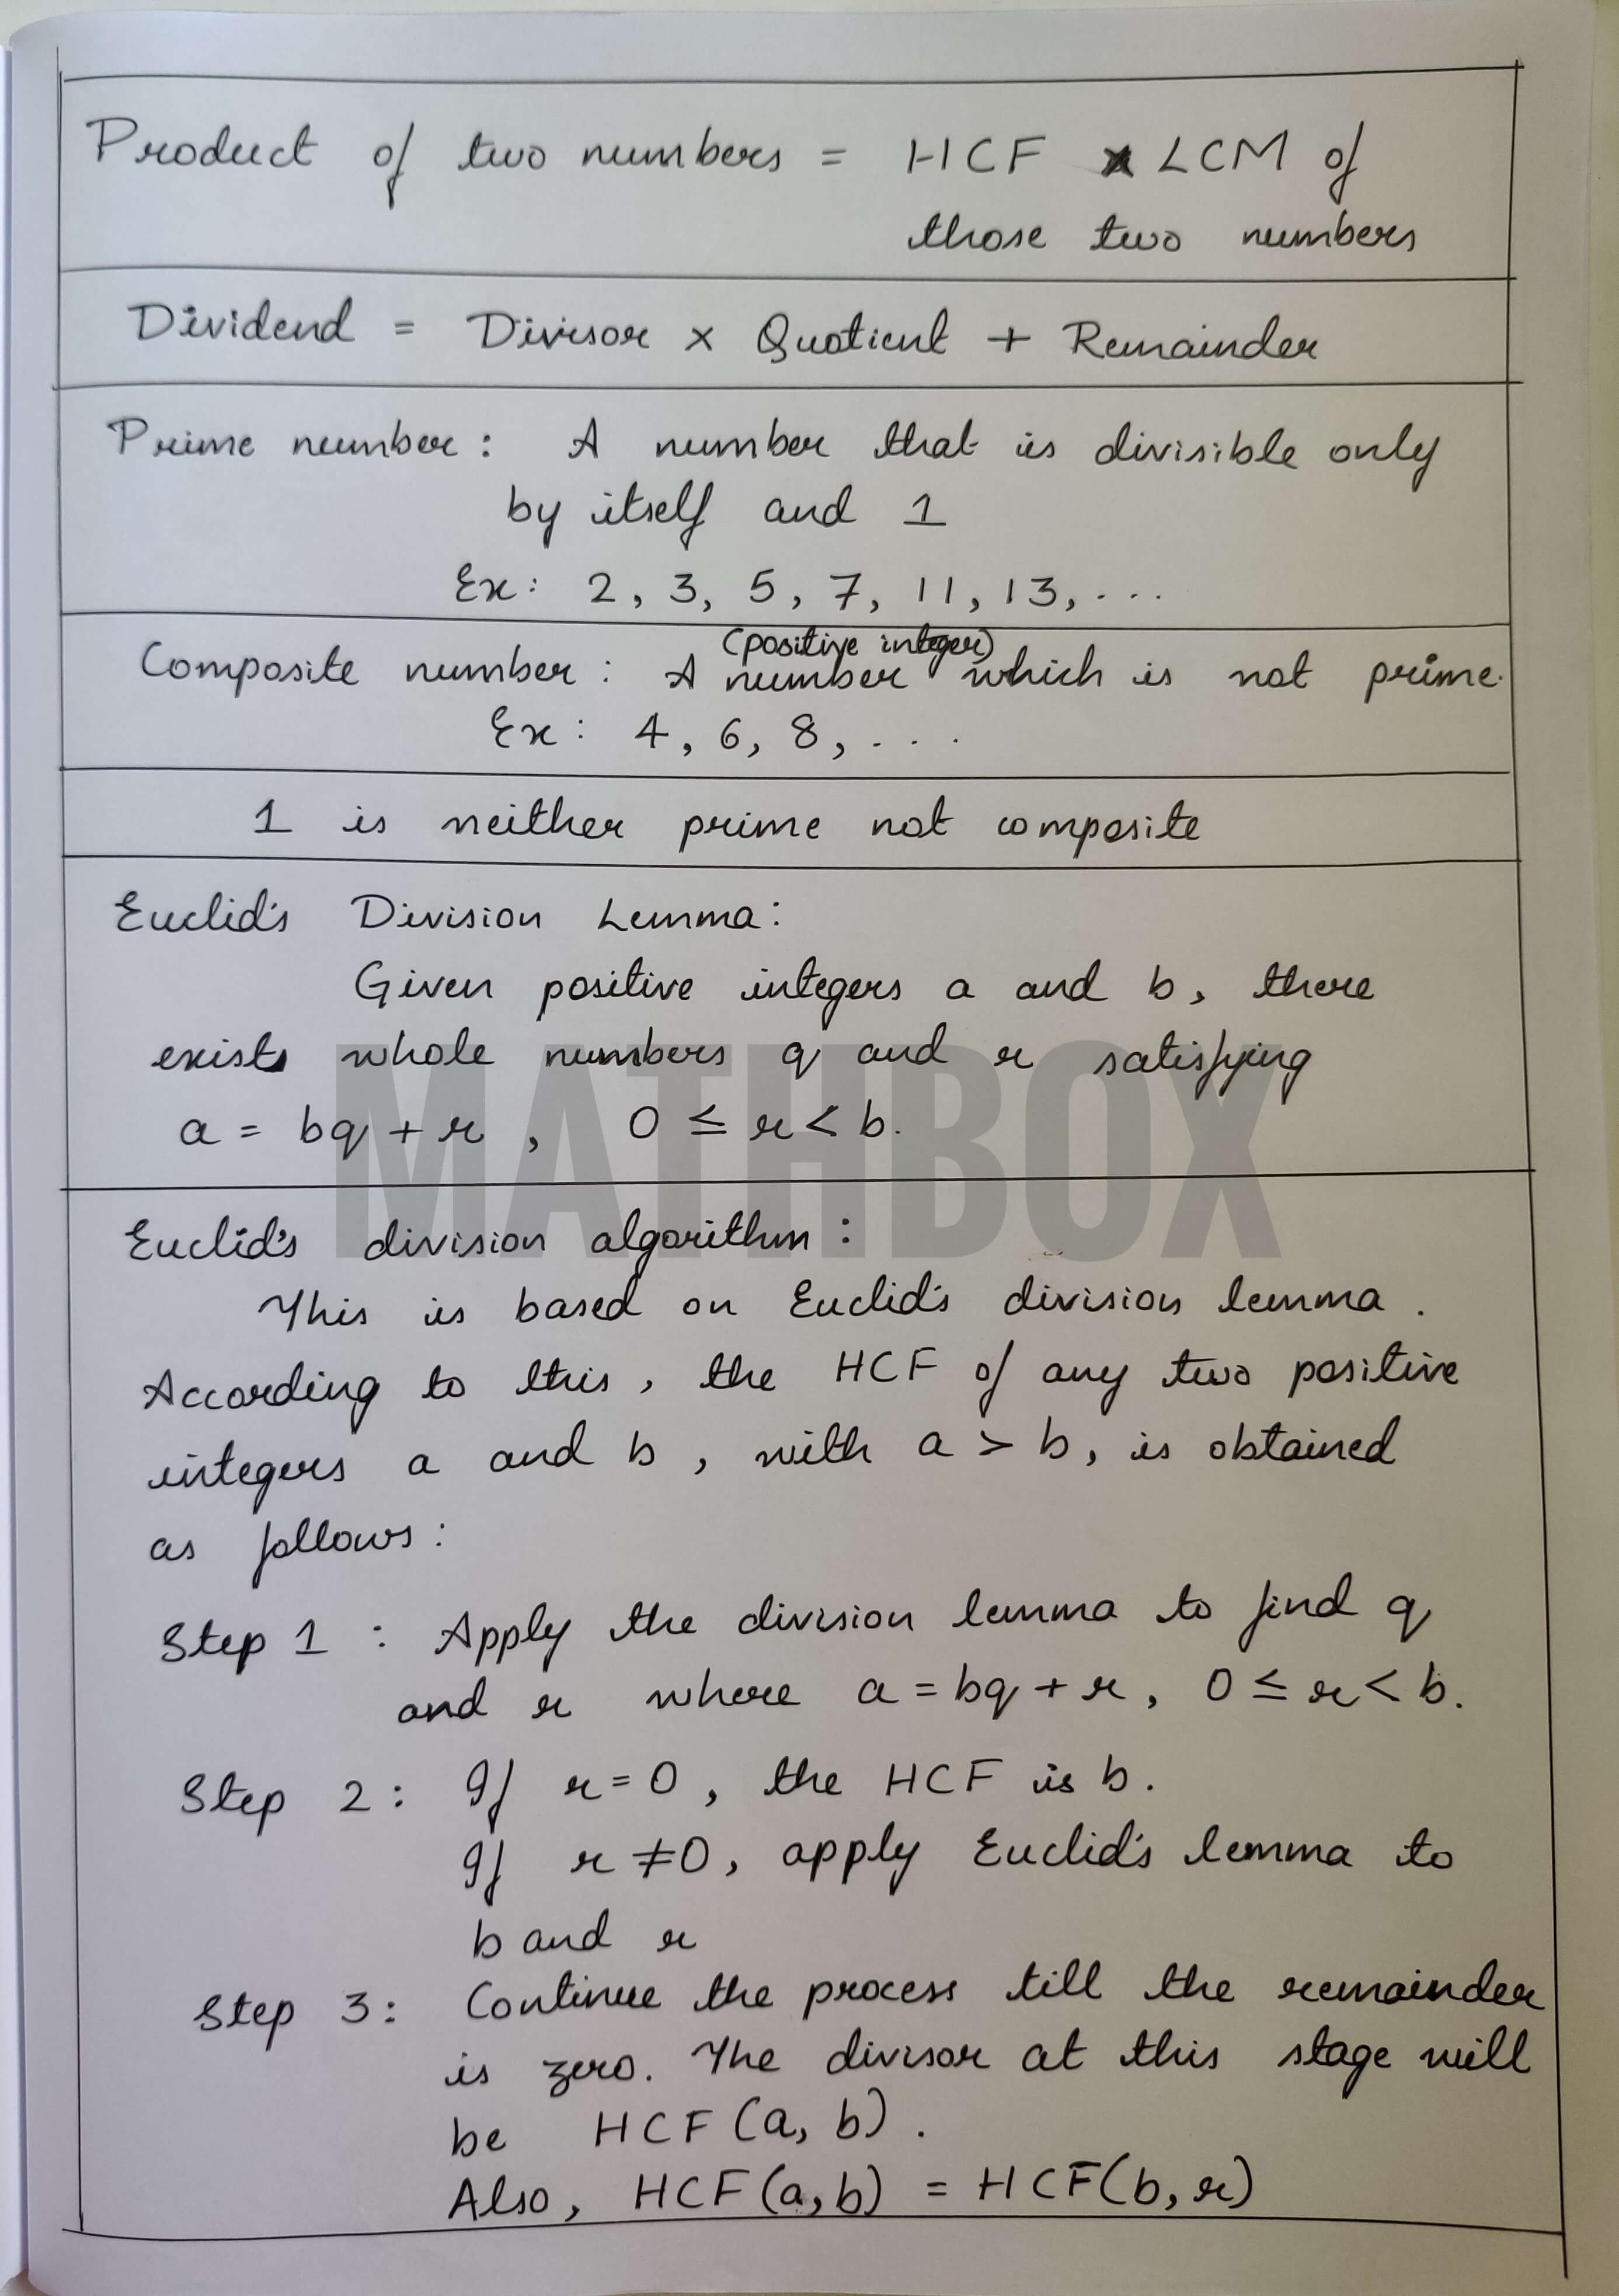 Product of two numbers = HCF x LCM of
those two numbers
Dividend = Divisor x Quotient + Remainder
Prime number : A number that is divisible only
by itself and 1
Ex : 2, 3, 5, 7, 11, 13, ...
(positive integer)
Composite number : A number which is not prime.
Ex : 4, 6, 8, ...
1 is neither prime not composite
Euclid's Division Lemma :
Given positive integers a and b, there
exists whole numbers q and r satisfying
a = bq + r , 0 ≤ r < b.
MATHBOX
Euclid's division algorithm :
This is based on Euclid's division lemma .
According to this , the HCF of any two positive
integers a and b , with a > b, is obtained
as follows :
Step 1 : Apply the division lemma to find q
and r where a = bq + r , 0 ≤ r < b.
Step 2 : If r = 0 , the HCF is b .
If r ≠ 0 , apply Euclid's lemma to
b and r
Step 3 : Continue the process till the remainder
is zero. The divisor at this stage will
be HCF (a, b) .
Also , HCF (a, b) = HCF (b, r)